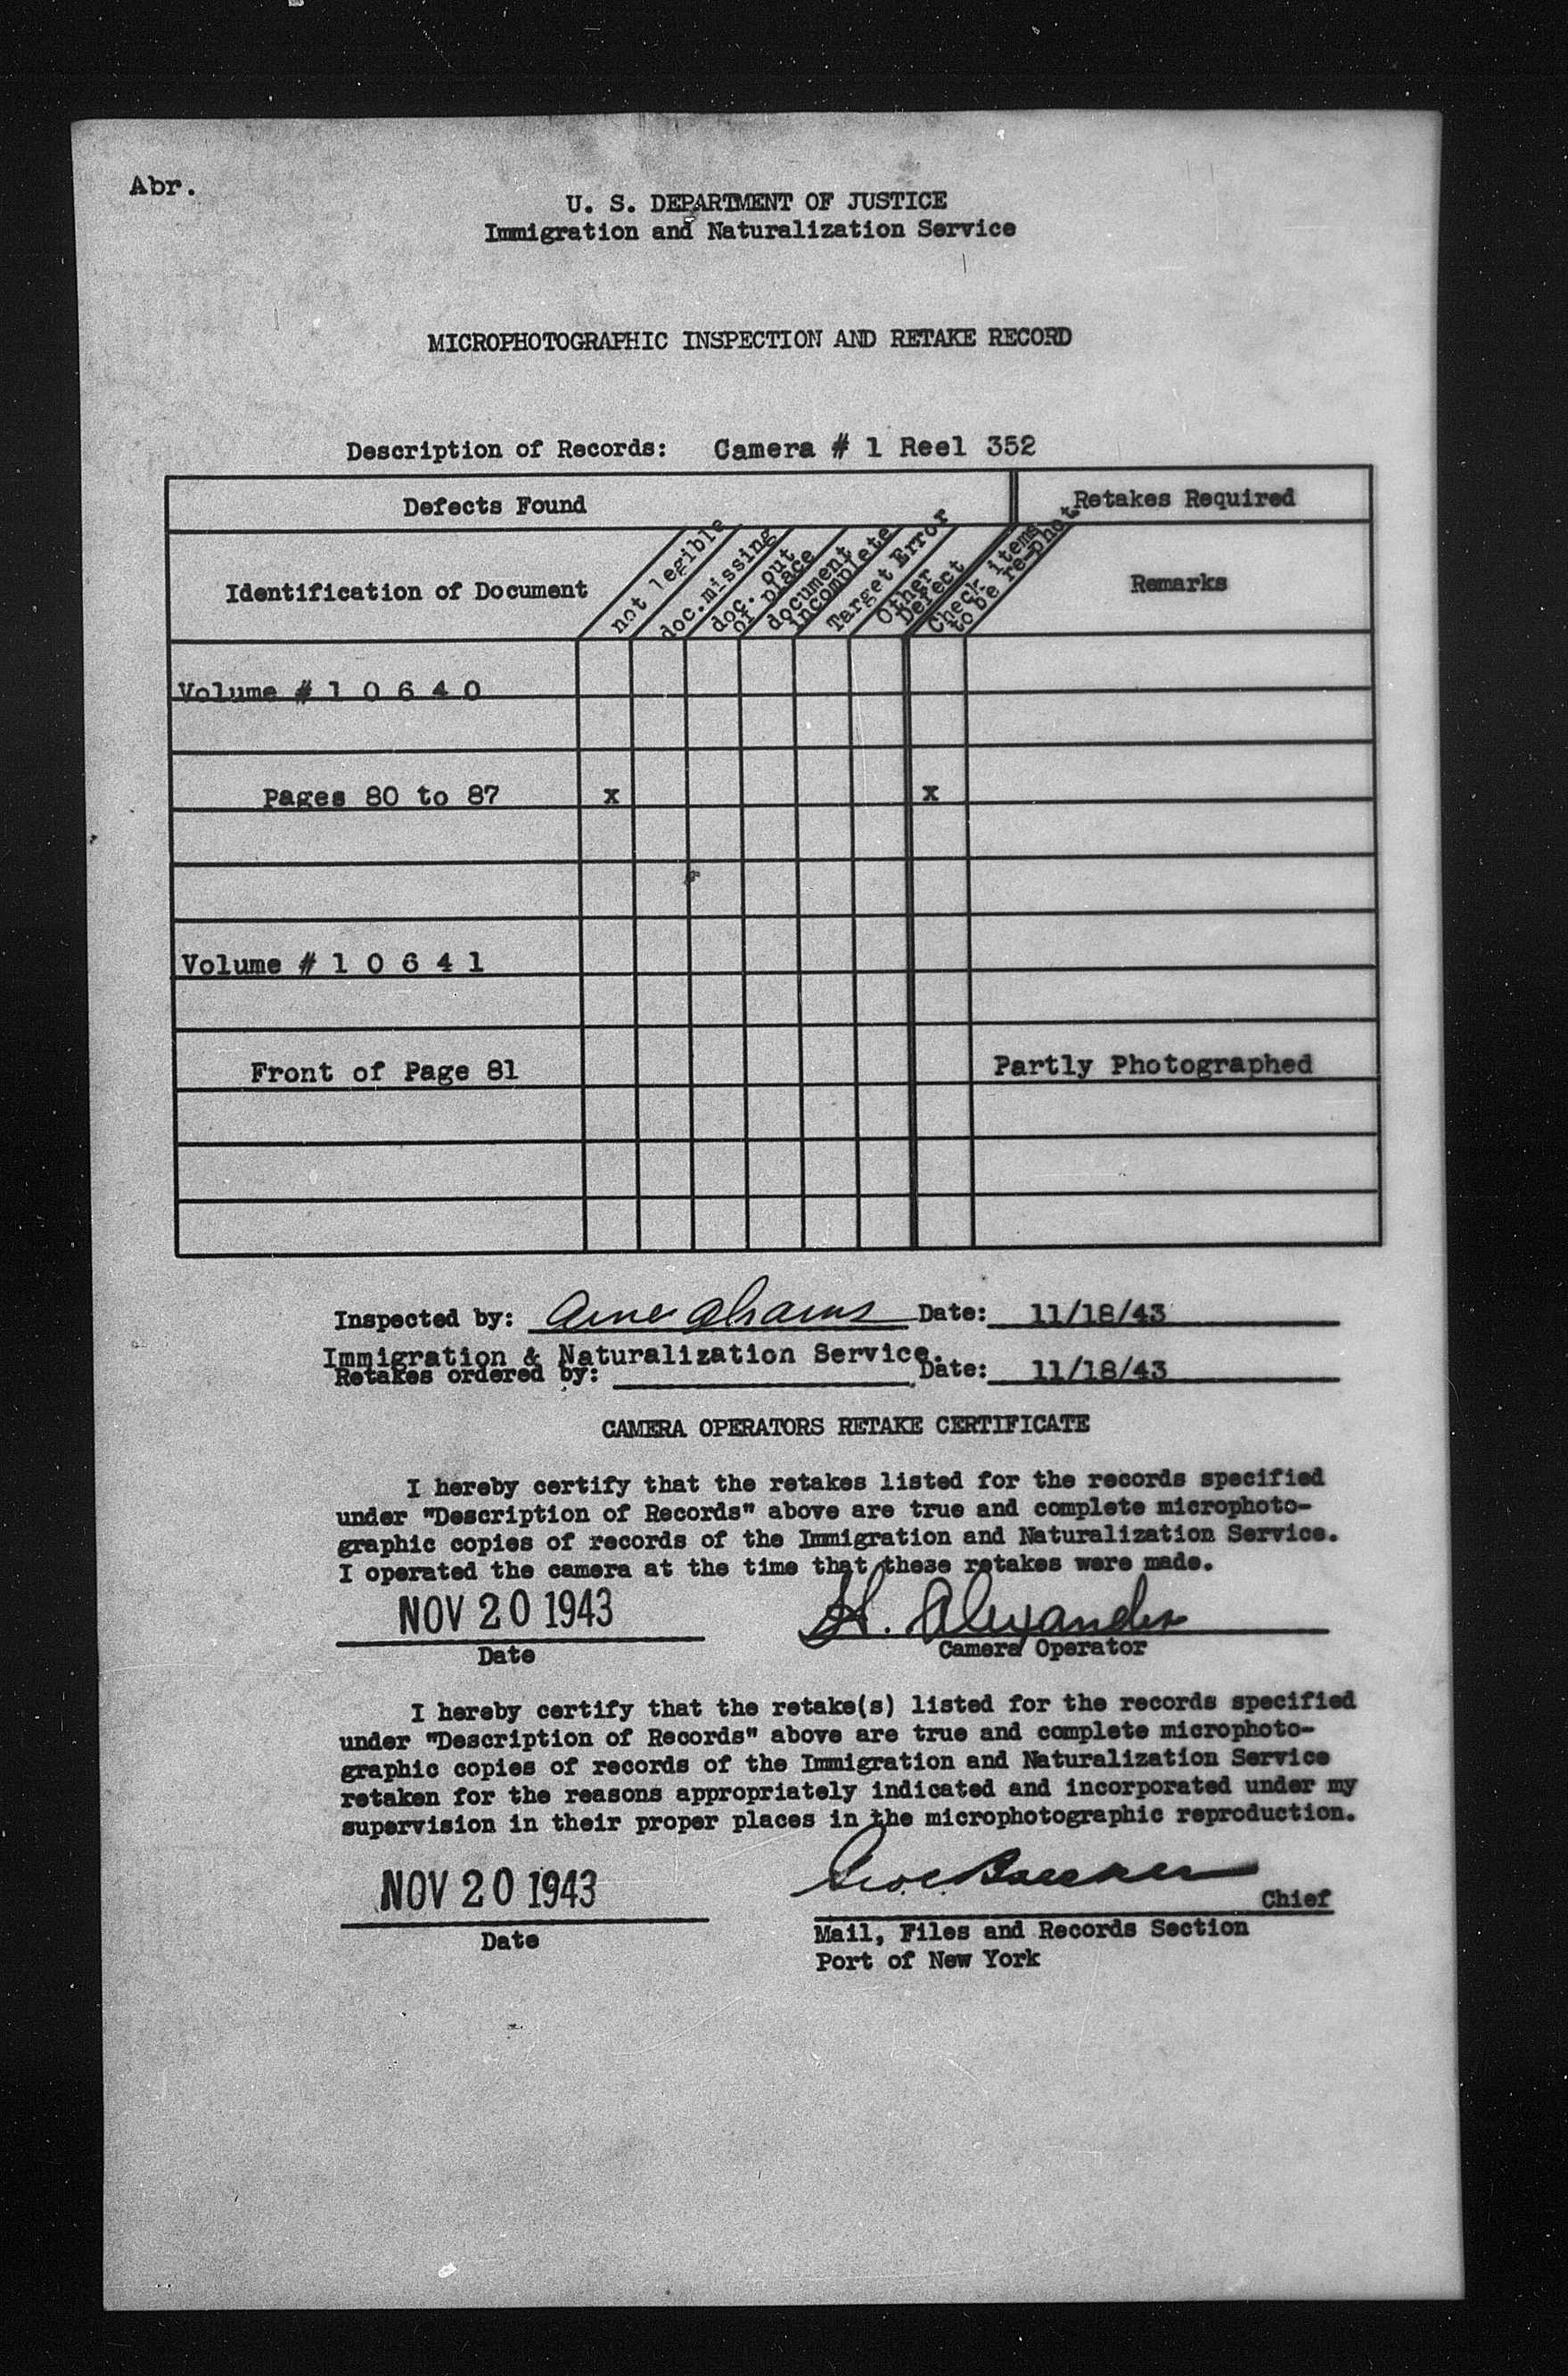 Abr.
U. S. DEPARTMENT OF JUSTICE
Immigration and Naturalization Service
MICROPHOTOGRAPHIC INSPECTION AND RETAKE RECORD
Description of Records: Camera # 1 Reel 352
Defects Found
Retakes Required
Identification of Document
not legible
doc. missing
doc. out
of place
document
incomplete
Target Error
Other
Defect
Check items
to be re-phot.
Remarks
Volume # 1 0 6 4 0
Pages 80 to 87 x x
Volume # 1 0 6 4 1
Front of Page 81 Partly Photographed
Inspected by: Date: 11/18/43
Immigration & Naturalization Service.
Retakes ordered by: Date: 11/18/43
CAMERA OPERATORS RETAKE CERTIFICATE
I hereby certify that the retakes listed for the records specified
under "Description of Records" above are true and complete microphoto-
graphic copies of records of the Immigration and Naturalization Service.
I operated the camera at the time that these retakes were made.
NOV 20 1943 H. Alexander
Date Camera Operator
I hereby certify that the retake(s) listed for the records specified
under "Description of Records" above are true and complete microphoto-
graphic copies of records of the Immigration and Naturalization Service
retaken for the reasons appropriately indicated and incorporated under my
supervision in their proper places in the microphotographic reproduction.
NOV 20 1943 Chief
Date
Mail, Files and Records Section
Port of New York